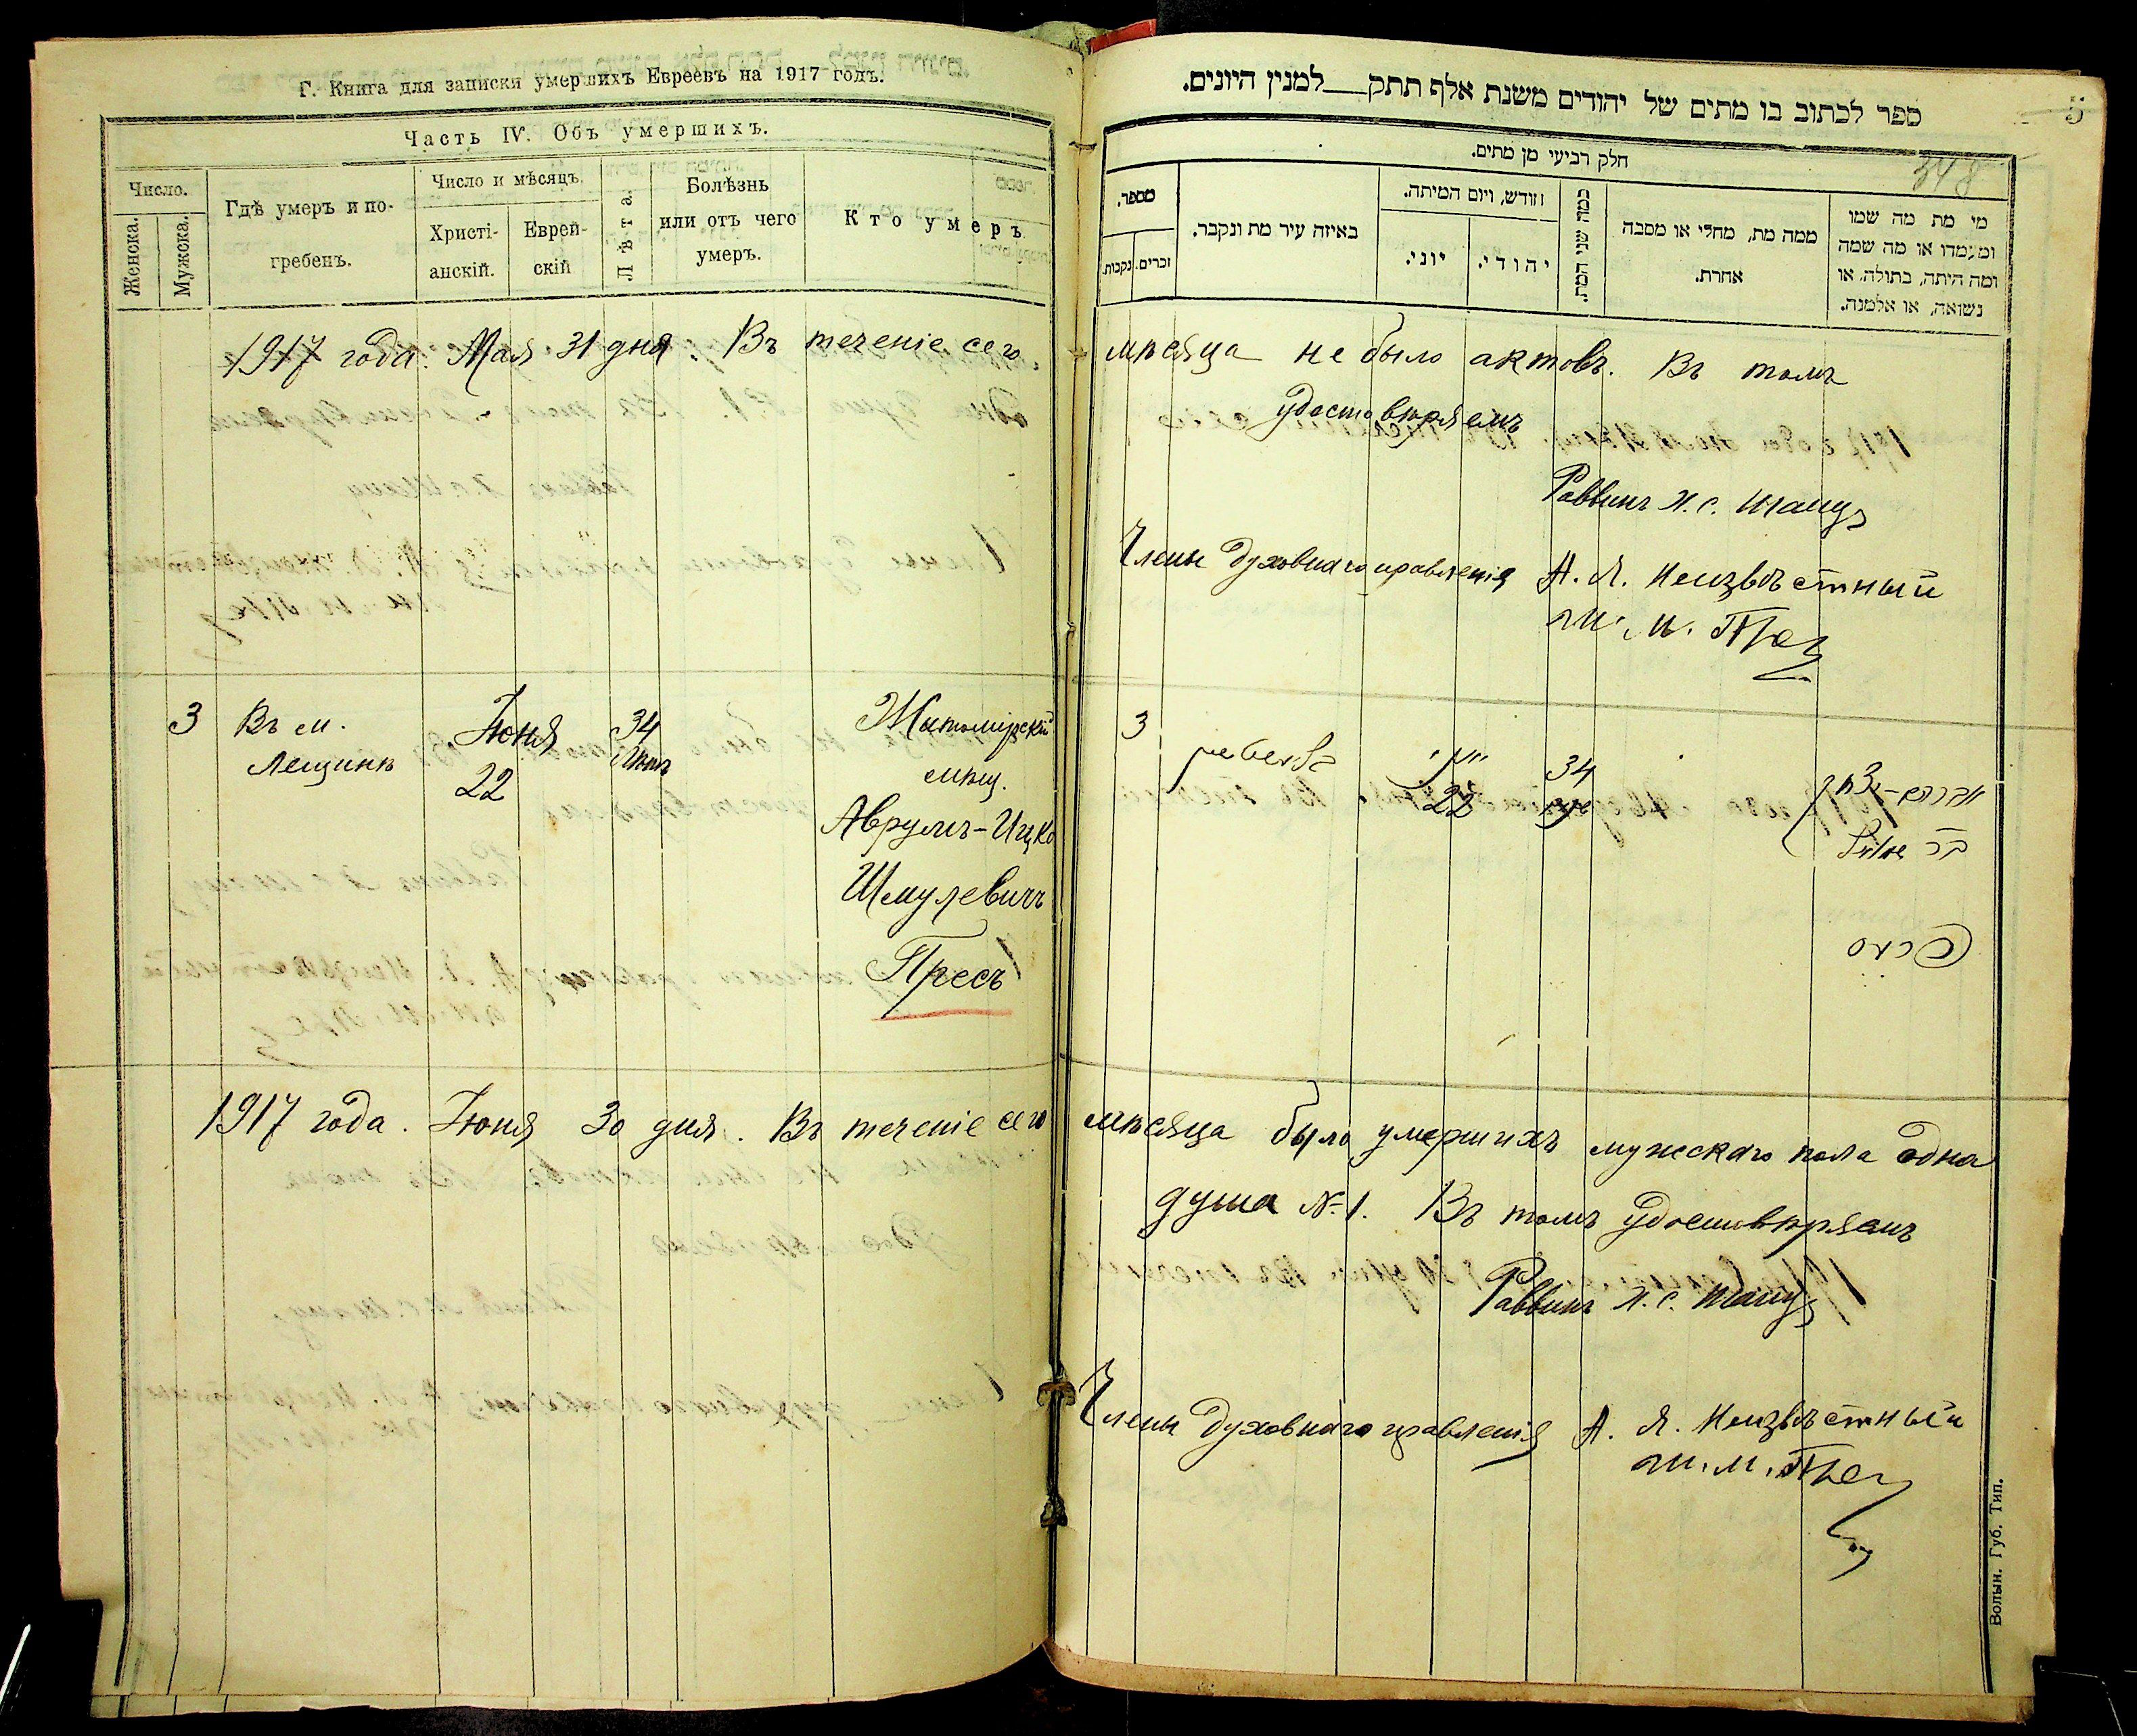 Г. Книга для записки умершихъ Евреевъ на 1917 годъ.
Часть IV. Объ умершихъ.
Число.
Женска.
Мужска.
Гдѣ умеръ и по-
гребенъ.
Число и мѣсяцъ.
Христі-
анскій.
Еврей-
скій
Лѣта.
Болѣзнь
или отъ чего
умеръ.
Кто умеръ
1917 года. Мая 31 дня. Въ теченіе сего
3
Въ м.
Лещинѣ
Іюня
22
34
Житомірскій
мѣщ.
Аврумъ-Ицко
Шмулевичъ
Пресъ
1917 года. Іюня 30 дня. Въ теченіе сего
5
348
ספר לכתוב בו מתים של יהודים משנת אלף תתק למנין היונים.
חלק רביעי מן מתים.
מספר.
זכרים.
נקבות.
באיזה עיר מת ונקבר.
חודש, ויום המיתה.
יוני.
יהודי.
כמה שני המת.
ממה מת, מחלי או מסבה
אחרת.
מי מת מה שמו
ומעמדו או מה שמה
ומה היתה, בתולה, או
נשואה, או אלמנה.
мѣсяца не было актовъ. Въ томъ
удостовѣряемъ
Раввинъ
Члены Духовнаго правленія А. Я. Неизвѣстный
3
22
34
мѣсяца было умершихъ мужескаго пола одна
душа №-1. Въ томъ удостовѣряемъ
Раввинъ
Члены Духовнаго правленія А. Я. Неизвѣстный
Волын. Губ. Тип.